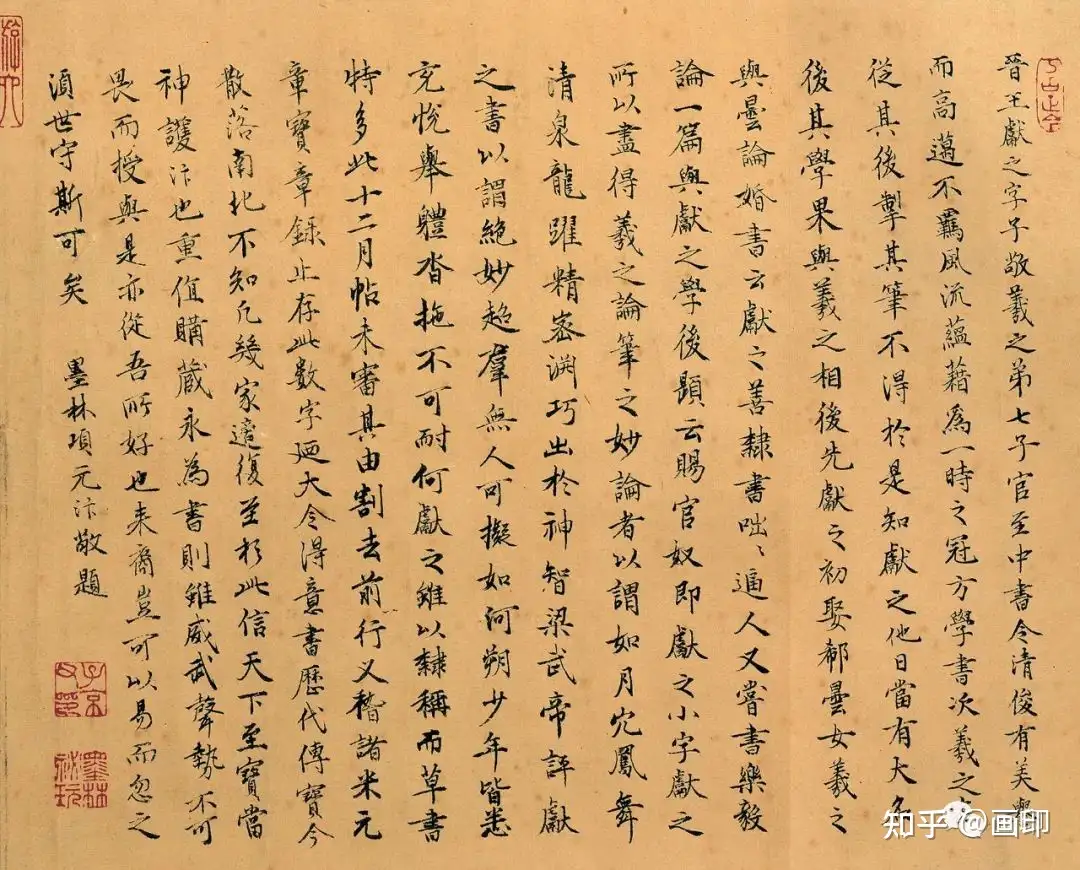 晉王獻之字子敬羲之弟七子官至中書令清俊有美譽
而高邁不羈風流蘊藉為一時之冠方學書次羲之密
從其後掣其筆不得於是知獻之他日當有大名
後其學果與羲之相後先獻之初娶郗曇女羲之
與曇論婚書云獻之善隸書咄〻逼人又嘗書樂毅
論一篇與獻之學後題云賜官奴即獻之小字獻之
所以盡得羲之論筆之妙論者以謂如月穴鳳舞
清泉龍躍精密淵巧出於神智梁武帝評獻
之書以謂絕妙超羣無人可擬如何朔少年皆悉
充悅舉體沓拖不可耐何獻之雖以隸稱而草書
特多此十二月帖未審其由割去前行又稽諸米元
章寶章錄止存此數字廼大令得意書歷代傳寶今
散落南北不知凡幾家適復至於此信天下至寶當
神護汴也重值購藏永為書則雖威武聲勢不可
畏而授與是亦從吾所好也来裔豈可以易而忽之
須世守斯可矣 墨林項元汴敬題
子京父印
墨林祕玩
知乎 @画印